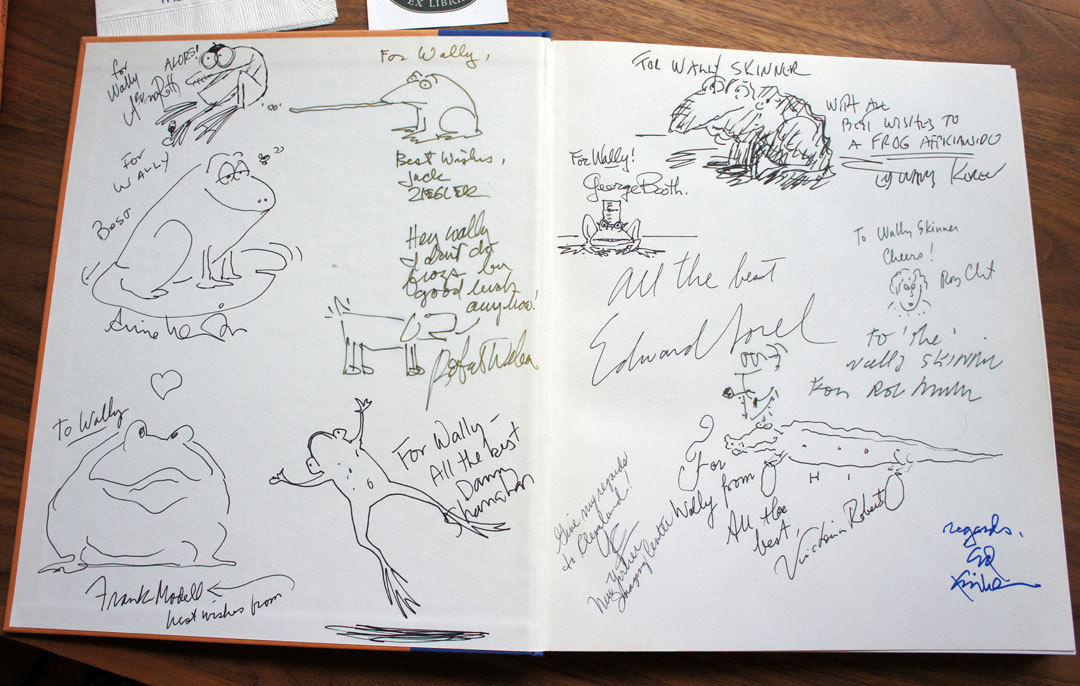 EX LIBRIS
For
Wally
ALORS!
For Wally,
Best Wishes,
Jack
ZIEGLER
For
WALLY
Best
Hey Wally
I don't do
frogs but
good luck
anyhoo!
To Wally
Frank Modell
best wishes from
For Wally –
All the best
Danny
Shanahan
FOR WALLY SKINNER
WITH THE
BEST WISHES TO
A FROG AFFICIANADO
KOREN
For Wally!
George Booth.
To Wally Skinner
Cheers!
Roz Chast
All the best
Edward Sorel
To 'the'
Wally SKINNER
From
Give my regards
to Cleveland!
New Yorker
Imaging Center
For
Wally from
H I
All the
best,
Victoria Roberts
regards,